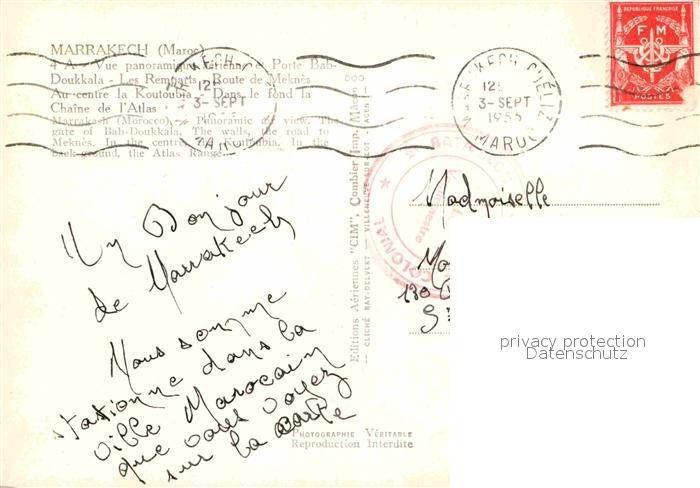 MARRAKECH (Maroc)
4 A - Vue panoramique aérienne et Porte Bab-
Doukkala - Les Remparts - Route de Meknès
Au centre la Koutoubia - Dans le fond la
Chaîne de l'Atlas
Marrakech (Morocco) - Panoramic air view. The
gate of Bab-Doukkala. The walls, the road to
Meknès. In the center, the Koutoubia. In the
back-ground, the Atlas Range.
Un Bonjour
de Marrakech
Nous somme
stationne dans la
ville Marocain
que vous voyez
sur la carte
PHOTOGRAPHIE VÉRITABLE
Reproduction Interdite
Editions Aériennes "CIM", Combier Imp. Macon
CLICHÉ RAY-DELVERT - VILLENEUVE-SUR-LOT
MARRAKECH GUÉLIZ
12
3-SEPT
1955
MAROC
3-SEPT
COLONIAL
RÉPUBLIQUE FRANÇAISE
F M
POSTES
Madmoiselle
130
privacy protection
Datenschutz